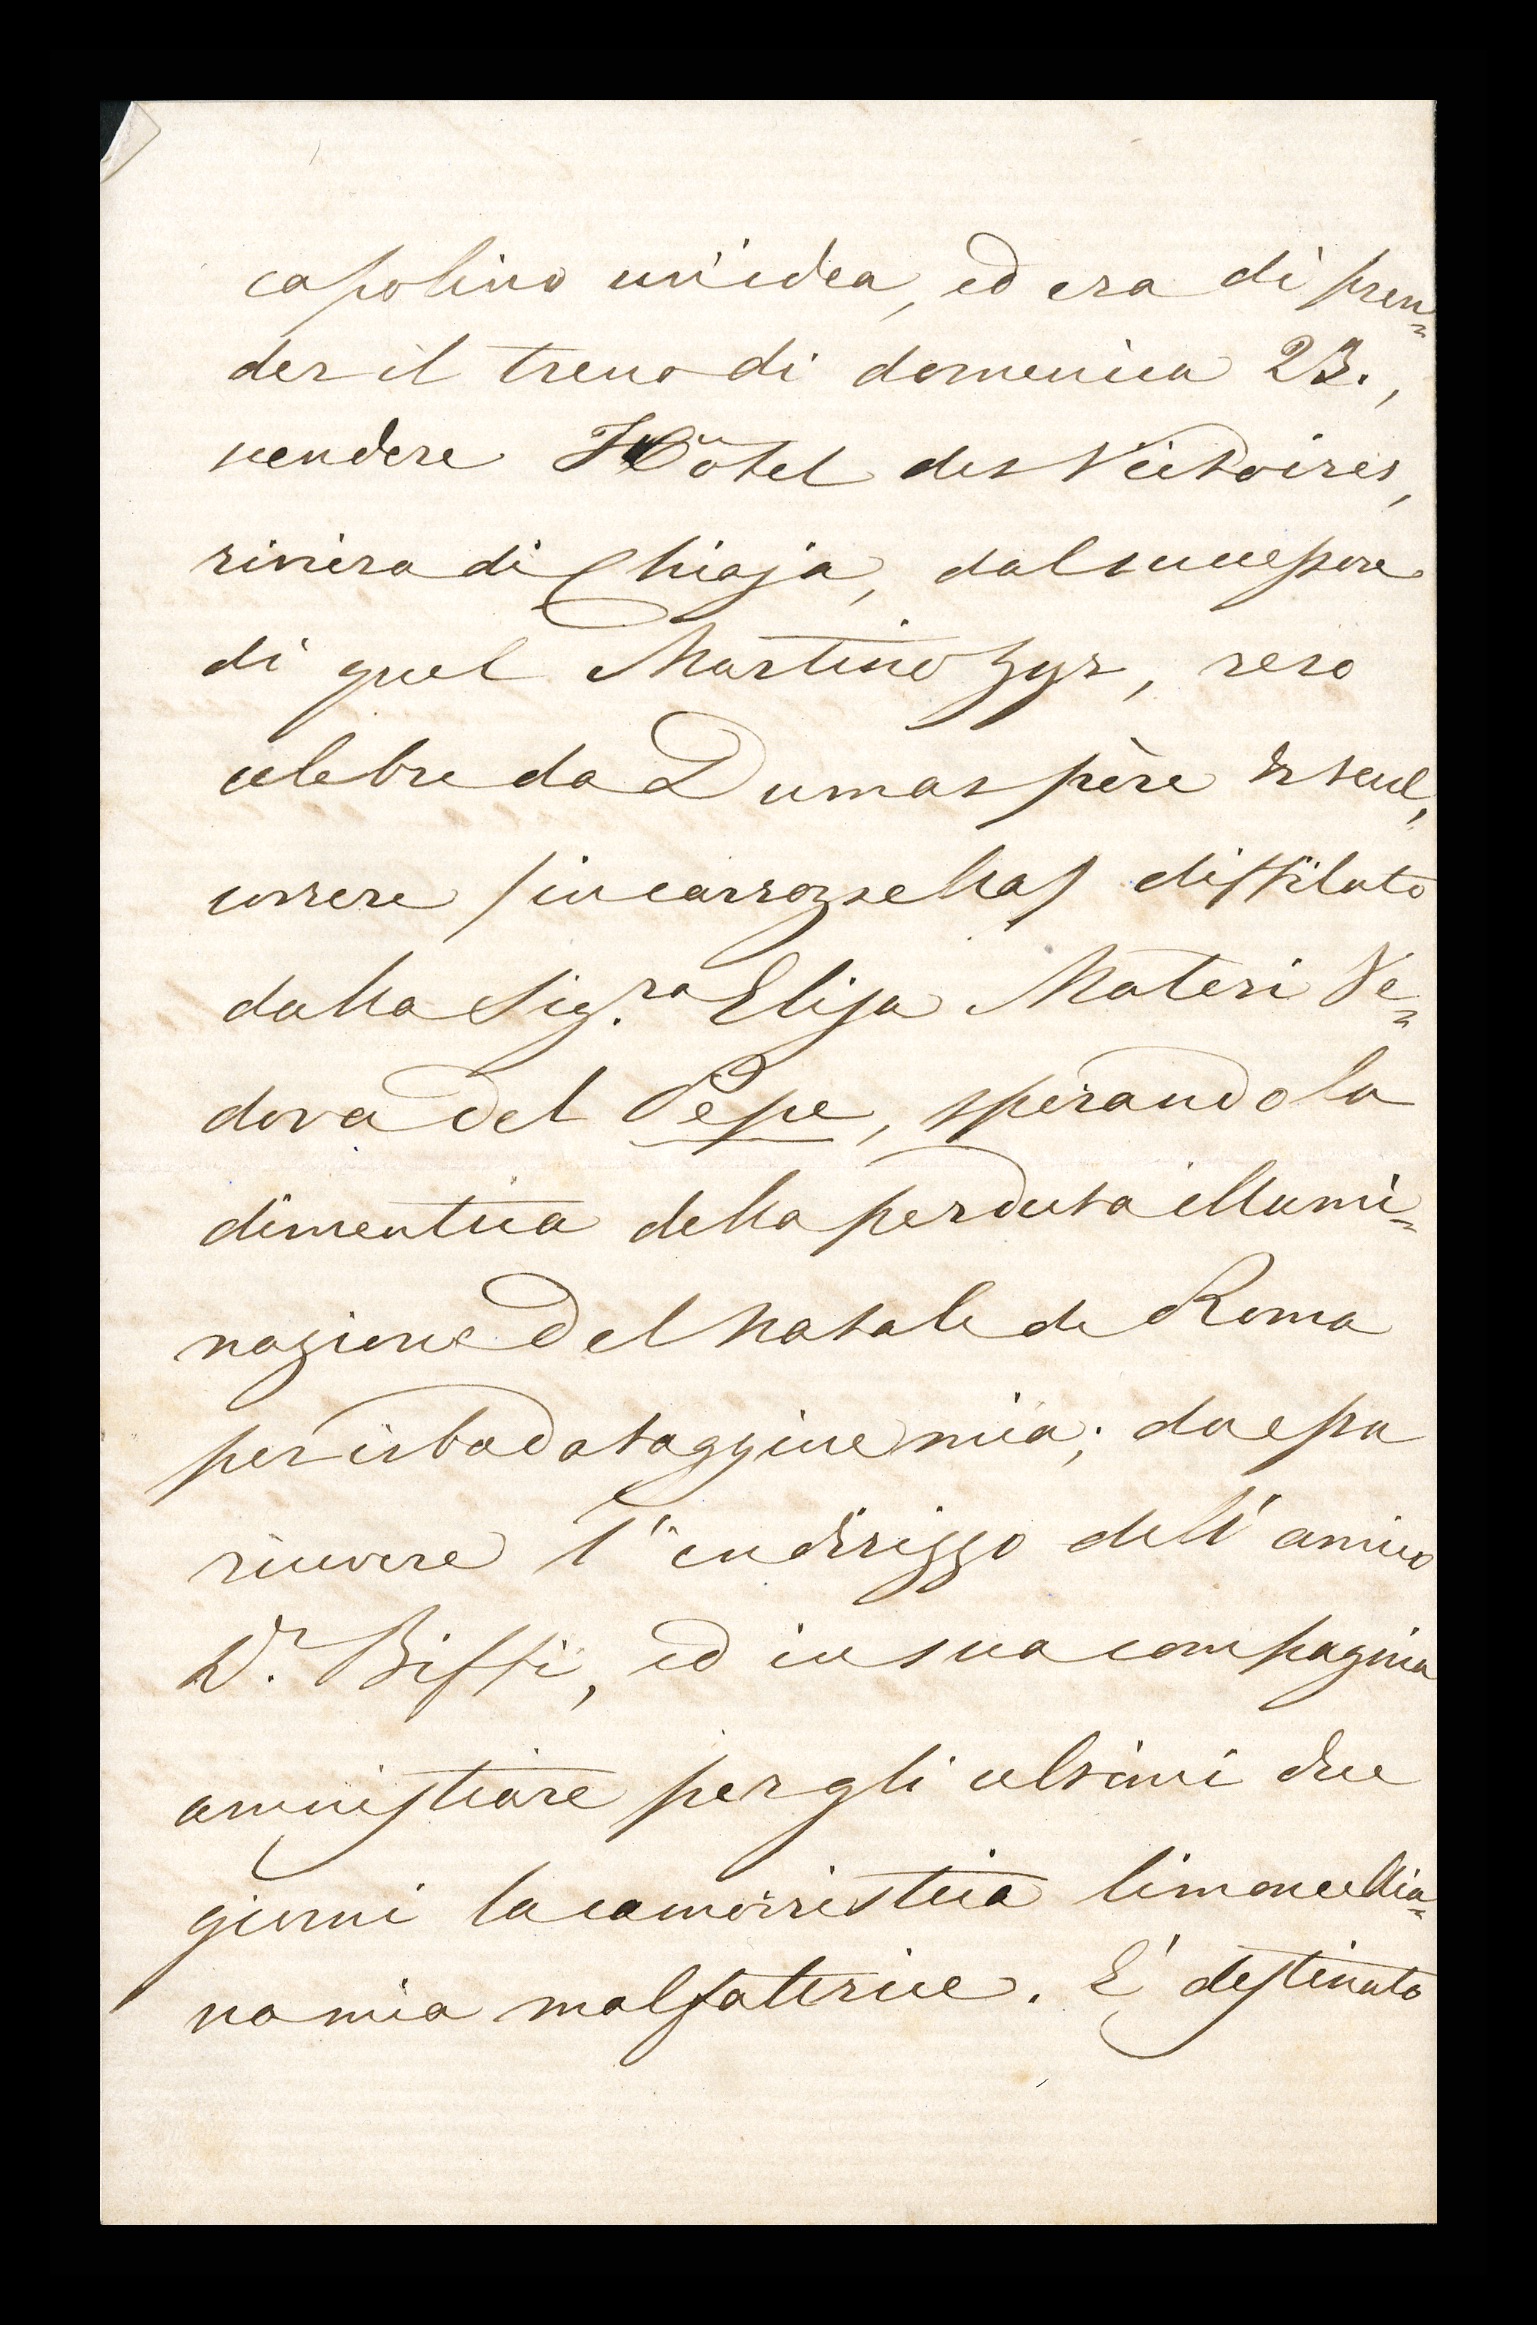 capolino un'idea, ed era di pren=
der il treno di domenica 23.,
scendere Hôtel des Victoires,
riviera di Chiaja, dal successore
di quel Martino Zyr, reso
celebre da Dumas père &
correre /in carrozzella/ diffilato
dalla Sig.ra Elisa Materi Ve=
dova del Pepe, sperandola
dimentica della perduta illumi=
nazione del Natale di Roma
per isbadataggine mia; da essa
ricevere l'indirizzo dell'amico
Dr. Biffi, ed in sua compagnia
amnistiare per gli ultimi due
giorni la camorristica limoncellia=
na mia malfatrice. E' destinato